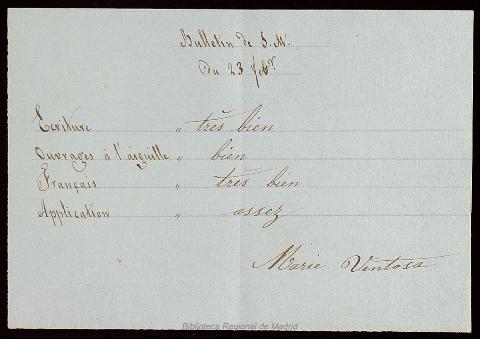 Bulletin de S. M.
Du 23 febr.
Ecriture " très bien
Ouvrages à l'aiguille " bien
Français " très bien
Application " assez
Marie Ventosa
Biblioteca Regional de Madrid